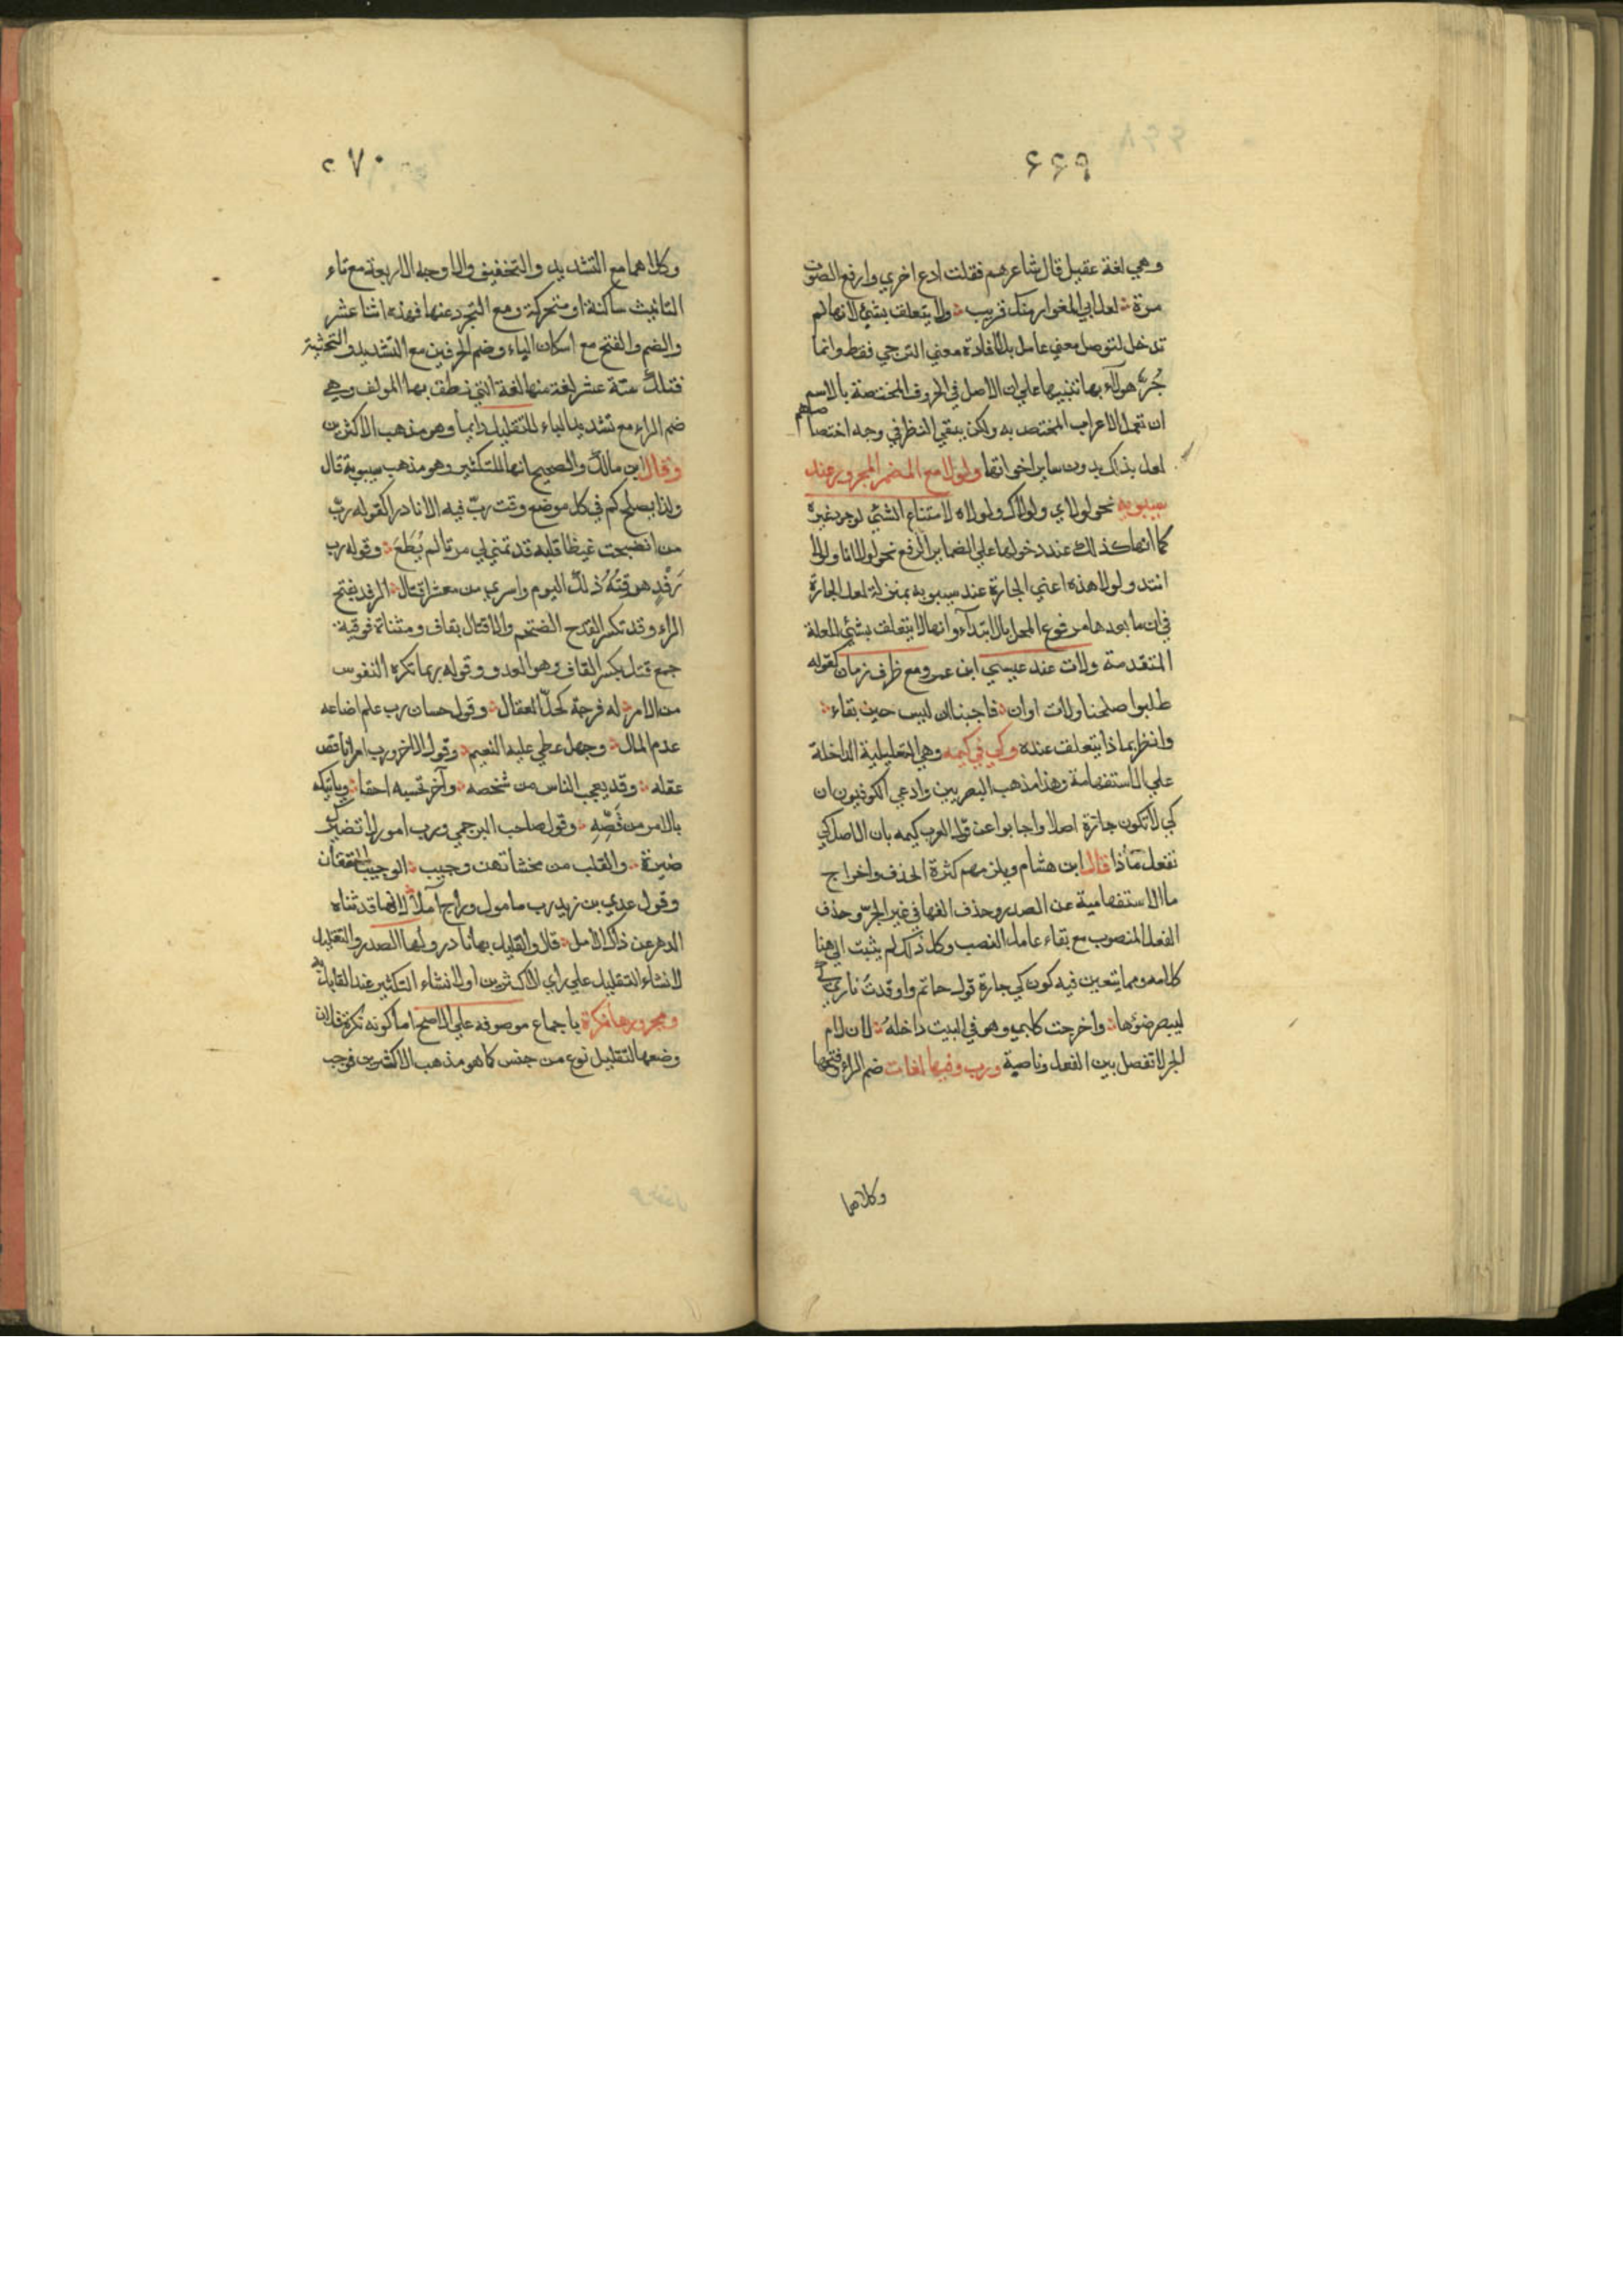 ٦٦٩
وهي لغة عقيل قال شاعرهم فقلت ادع اخري وارفع الصوت
مرة لعل ابي المغوار منك قريب ولا يتعلق بشئ لانها لم
تدخل لتوصل معني عامل بل لافادة معني الترجي فقط وانما
جُرَّ هولاء بها تنبيها علي ان الاصل في الحروف المختصة بالاسم
ان تعمل الاعراب المختص به ولكن يبقي النظر في وجه اختصاصهم
لعل بذلك بدون ساير اخواتها ولولا مع المضمر المجرور عند
سيبويه نحو لولاي ولولاك ولولاه لامتناع الشئ لوجود غيره
كما انها كذلك عند دخولها علي الضماير الرفع نحو لولا انا ولولا
انتد ولولا هذه اعني الجارة عند سيبويه بمنزلة لعل الجارة
في ان ما بعدها مرفوع المحل بالابتداء وانها لا يتعلق بشئ للعلة
المتقدمة ولات عند عيسي ابن عمر ومع ظرف زمان كقوله
طلبوا صلحنا ولات اوان فاجبنا ان ليس حين بقاء
وانظر بماذا يتعلق عنده وكي في كيمه وهي التعليلية الداخلة
علي الاستفهامية وهذا مذهب البصريين وادعي الكوفيون ان
كي لا تكون جارة اصلا واجابوا عن قول العرب كيمه بان الاصل كي
تفعل ماذا قال ابن هشام ويلزمهم كثرة الحذف واخراج
ما الاستفهامية عن الصدر وحذف الفها في غير الجرّ وحذف
الفعل المنصوب مع بقاء عامل النصب وكل ذلك لم يثبت الي هنا
كلامه ومما يتعين فيه كون كي جارة قول حاتم واوقدتُ ناري كي
ليبصر ضوءها واخرجت كلبي وهو في البيت داخلهُ لان لام
الجر لا تفصل بين الفعل وناصبه ورب وفيها لغات ضم الراء وفتحها
وكلاهما
٢٧٠
وكلاهما مع التشديد والتخفيف والاوجه الاربعة مع تاء
التانيث ساكنة او متحركة ومع التجرد عنها فهذه اثنا عشر
والضم والفتح مع اسكان الباء وضم الحرفين مع التشديد والتخفيف
فتلك ستة عشر لغة منها لغة التي نطق بها المولف وهي
ضم الراء مع تشديد الباء للتقليل دايما وهو مذهب الاكثرين
وقال ابن مالك والصحيح انها للتكثير وهو مذهب سيبويه قال
ولذا يصلح كم في كل موضع وقعت ربّ فيه الا نادرا كقوله ربّ
من انضجت غيظا قلبه قد تمني لي موتا لم يُطَعَ وقوله رب
رَفْدٍ هرقتُهُ ذلك اليوم واسري من معشر اقتال الرفد بفتح
الراء وقد تكسر القدح الضخم والاقتال بقاف ومثناة فوقية
جمع قتل بكسر القاف وهو العدو وقوله ربما تكره النفوس
من الامر له فرجة كحلّ العقال وقول حسان رب علم اضاعه
عدم المال وجهل غطي عليه النعيم وقول الاخر ورب امر ناقص
عقله وقد يعجب الناس من شخصه وآخر تحسبه احمقا وياتيك
بالامر من فَصِّهِ وقول صاحب البرجمي ورب امور لا تضيرك
ضيرة والقلب من مخشاتهن وجيب الوجيب الخفقان
وقول عدي بن زيد رب مامول وراج املا قد ثناه
الدهر عن ذاك الامل قال والقليل بها نادر ولها الصدر والتقليل
لانشاء التقليل علي راي الاكثرين او لانشاء التكثير عند القايل به
ومجرورها نكرة باجماع موصوفة علي الاصح اما كونه نكرة فلان
وضعها لتقليل نوع من جنس كما هو مذهب الاكثرين فوجب